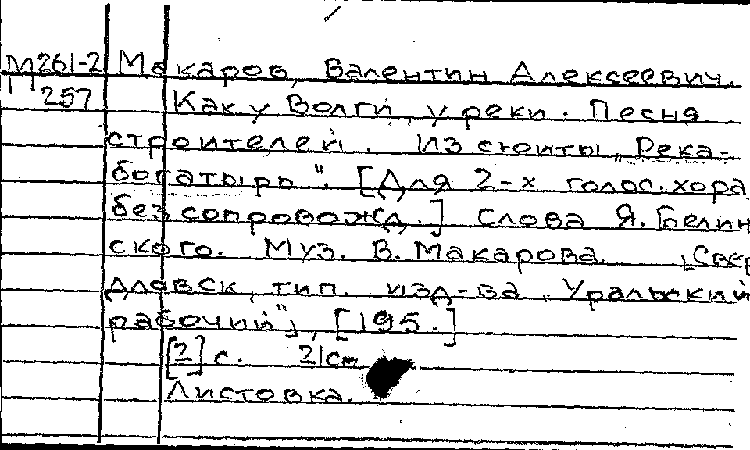 М261-2 Макаров, Валентин Алексеевич.
М257 Как у Волги, у реки. Песня
строителей. Из сюиты „Река-
богатырь". [Для 2-х голос. хора
без сопровожд.] Слова Я. Белин
ского. Муз. В. Макарова. [Свер
дловск, тип. изд-ва „Уральский
рабочий"], [195.]
[2] с. 21см
Листовка.